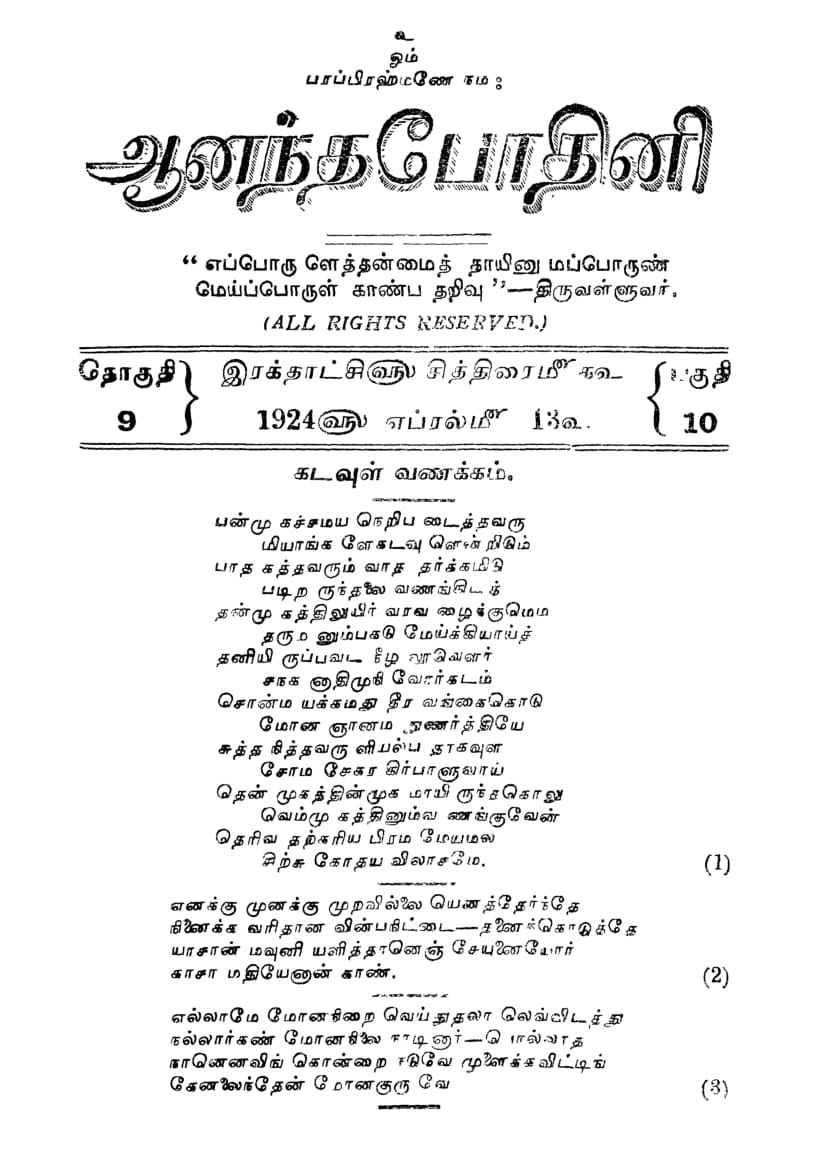 உ
ஓம்
பரப்பிரஹ்மணே நம:
ஆனந்தபோதினி
“ எப்பொரு ளெத்தன்மைத் தாயினு மப்பொருண்
மெய்ப்பொருள் காண்ப தறிவு ”—திருவள்ளுவர்.
(ALL RIGHTS RESERVED.)
தொகுதி 9
இரக்தாட்சி௵ சித்திரை௴ ௧௳
1924௵ எப்ரல்௴ 13௳.
பகுதி 10
கடவுள் வணக்கம்.
பன்மு கச்சமய நெறிப டைத்தவரு
மியாங்க ளேகடவு ளென் றிடும்
பாத கத்தவரும் வாத தர்க்கமிடு
படிற ருந்தலை வணங்கிடத்
தன்மு கத்திலுயிர் வரவ ழைக்குமெம
தரும னும்பகடு மேய்க்கியாய்த்
தனியி ருப்பவட நீழ லூடுவளர்
சநக னாதிமுநி வோர்கடம்
சொன்ம யக்கமது தீர வங்கைகொடு
மோன ஞானம துணர்த்தியே
சுத்த நித்தவரு ளியல்ப தாகவுள
சோம சேகர கிர்பாளுவாய்
தென் முகத்தின்முக மாயி ருந்தகொலு
வெம்மு கத்தினும்வ ணங்குவேன்
தெரிவ தற்கரிய பிரம மேயமல
சிற்சு கோதய விலாசமே. (1)
எனக்கு முனக்கு முறவில்லை யெனத்தேர்ந்தே
நினைக்க வரிதான வின்பநிட்டை—தனைக்கொடுத்தே
யாசான் மவுனி யளித்தானெஞ் சேயுனையோர்
காசா மதியேனான் காண். (2)
எல்லாமே மோனநிறை வெய்துதலா லெவ்விடத்து
நல்லார்கண் மோனநிலை நாடினார்—பொல்லாத
நானெனவிங் கொன்றை நடுவே முளைக்கவிட்டிங்
கேனலைந்தேன் மோனகுரு வே (3)